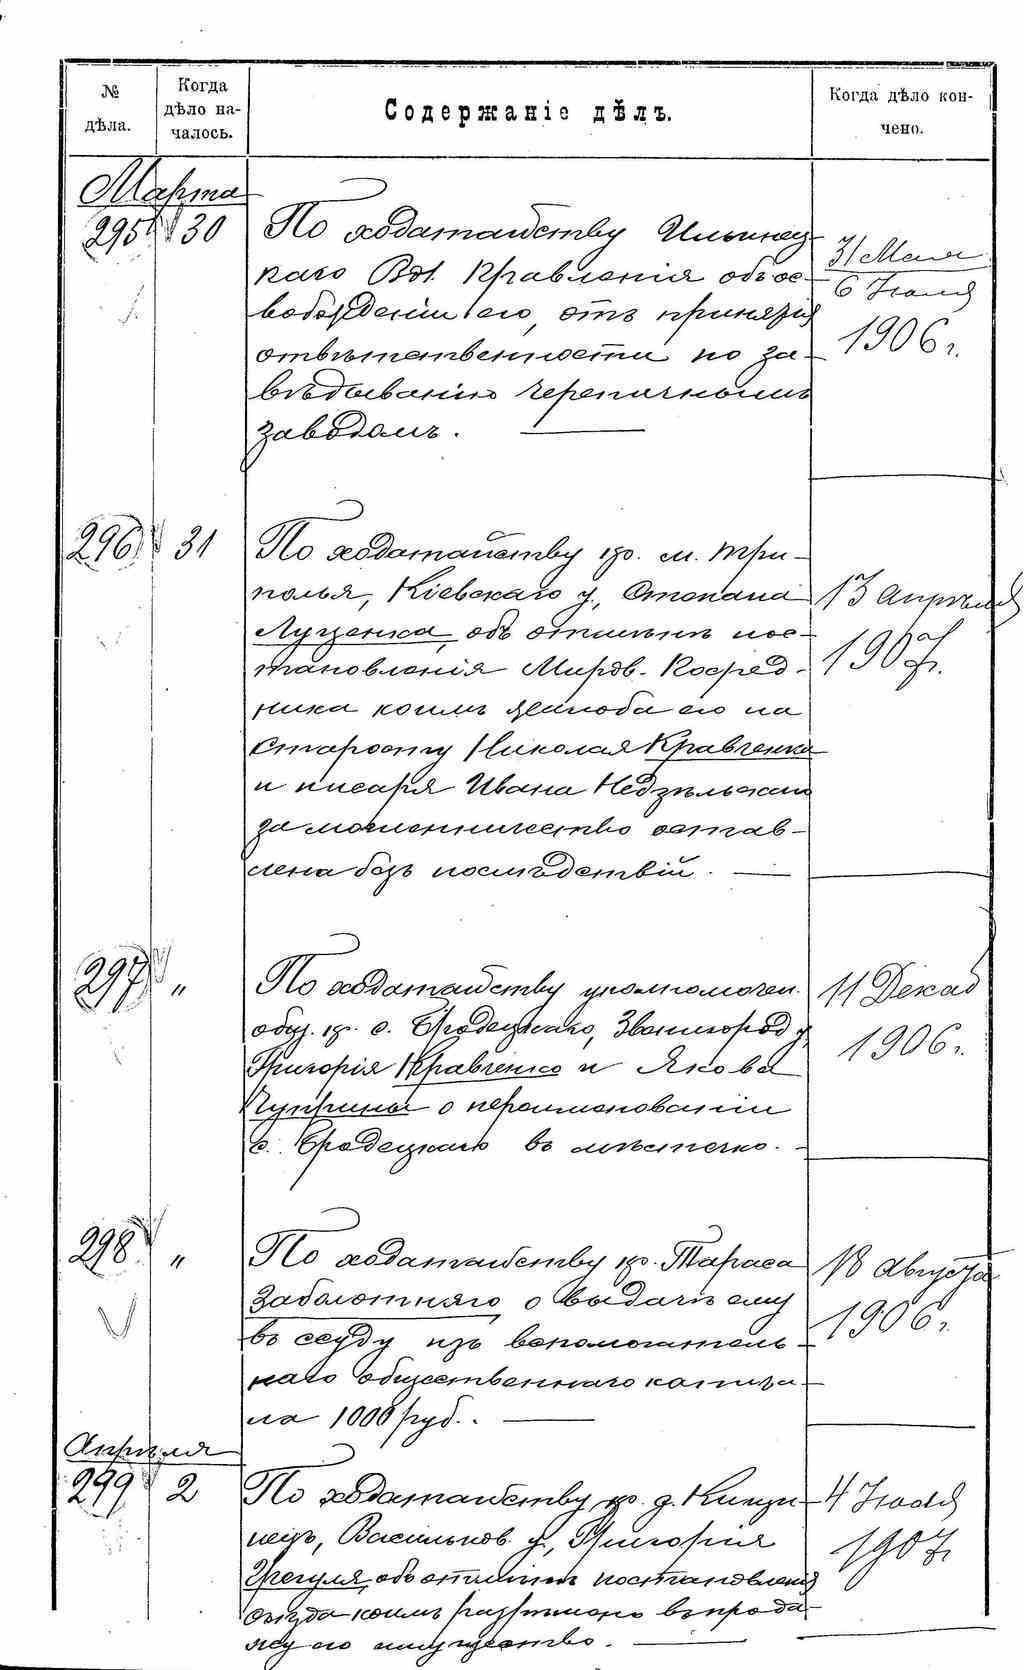 № дѣла.
Когда дѣло началось.
Содержаніе дѣлъ.
Когда дѣло кончено.
Марта
295 30 По ходатайству Ильинец-
каго Вол. Правленія объ ос-
вобожденіи его отъ принятія
отвѣтственности по за-
вѣдыванію черепичнымъ
заводомъ.
31 Мая
6 Іюля
1906 г.
296 31 По ходатайству кр. м. Три-
полья, Кіевскаго у., Степана
Луценка, объ отмѣнѣ пос-
тановленія Миров. Посред-
ника коимъ жалоба его на
старосту Николая Кравченка
и писаря Ивана Недзѣльскаго
за мошенничество остав-
лена безъ послѣдствій.
13 Апрѣля
1907 г.
297 " По ходатайству уполномочен.
общ. кр. с. Бродецкаго, Звенигород. у,
Григорія Кравченко и Якова
Чуприны о переименованіи
с. Бродецкаго въ мѣстечко.
11 Декаб
1906 г.
298 " По ходатайству кр. Тараса
Заболотняго о выдачѣ ему
въ ссуду изъ вспомогатель-
наго общественнаго капита-
ла 1000 руб.
18 Августа
1906 г.
Апрѣля
299 2 По ходатайству кр. д.
Васильков. у., Григорія
объ отмѣнѣ постановленія
съѣзда коимъ разрѣшено въ прода-
жу его имущество.
4 Іюля
1907 г